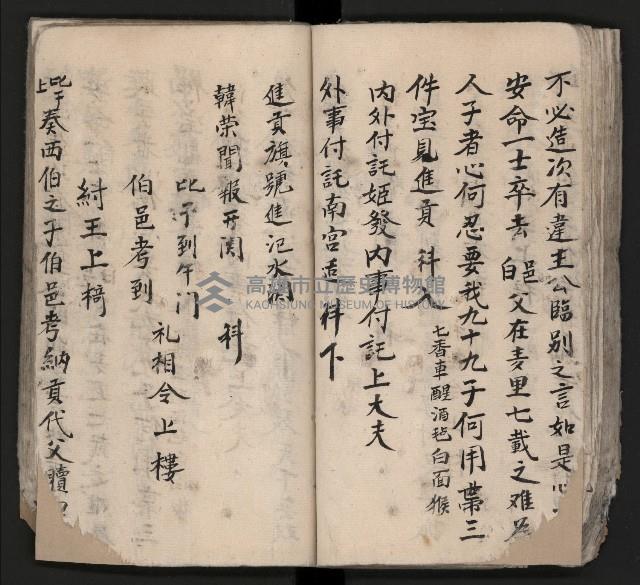 不必造次有違王公臨別之言如是心
安命一士卒去 邑白 父在羑里七載之难為
人子者心何忍要我九十九子何用帶三
件宝見進貢 科入 七香車醒酒毡白面猴
內外付託姬發內事付託上大夫
外事付託南宮适 科下
進貢旗號進汜水関
韓荣聞報开関 科
比干到午门
礼相令上樓
伯邑考到
紂王上椅
比干上奏西伯之子伯邑考納貢代父贖
高雄市立歷史博物館
KAOHSIUNG MUSEUM OF HISTORY